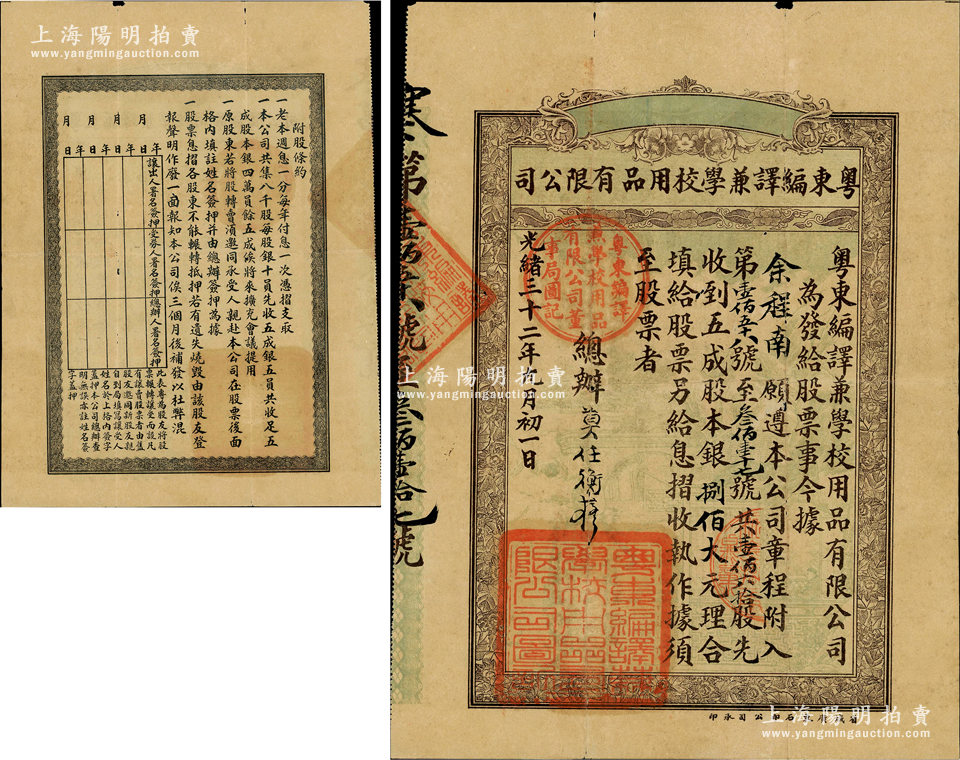 上海陽明拍賣
www.yangmingauction.com
附股條約
一老本週息一分每年付息一次憑摺支取
一本公司共集八千股每股銀十員先收五成銀五員共收足五
成股本銀四萬員餘五成俟將來擴充會議提用
一原股東若將股轉賣須邀同承受人親赴本公司在股票後面
格內填註姓名簽押並由總辦簽押為據
一股票息摺各股東不能輾轉抵押若有遺失燒毀由該股友登
報聲明作廢一面報知本公司俟三個月後補發以杜弊混
年 月 日
年 月 日
年 月 日
年 月 日
讓出人署名簽押
受券人署名簽押
總辦人署名簽押
此表專為股友將股
票輾轉讓受而設凡
有讓賣股票者由舊
股友邀同新股友親
自到局填寫讓受人
姓名於上格內簽字
蓋押本公司總辦查
明無誤亦註姓名簽
字蓋押
粵東編譯兼學校用品有限公司
粵東編譯兼學校用品有限公司
為發給股票事今據
余程南願遵本公司章程附入
第壹佰五十八號至叁佰壹十七號共壹佰六拾股先
收到五成股本銀捌佰大元理合
填給股票另給息摺收執作據須
至股票者
總辦莫任衡
光緒三十二年九月初一日
粵東編譯
兼學校用品
有限公司董
事局圖記
粵東編譯兼
學校用品有
限公司圖
上海陽明拍賣
www.yangmingauction.com
上海陽明拍賣
www.yangmingauction.com